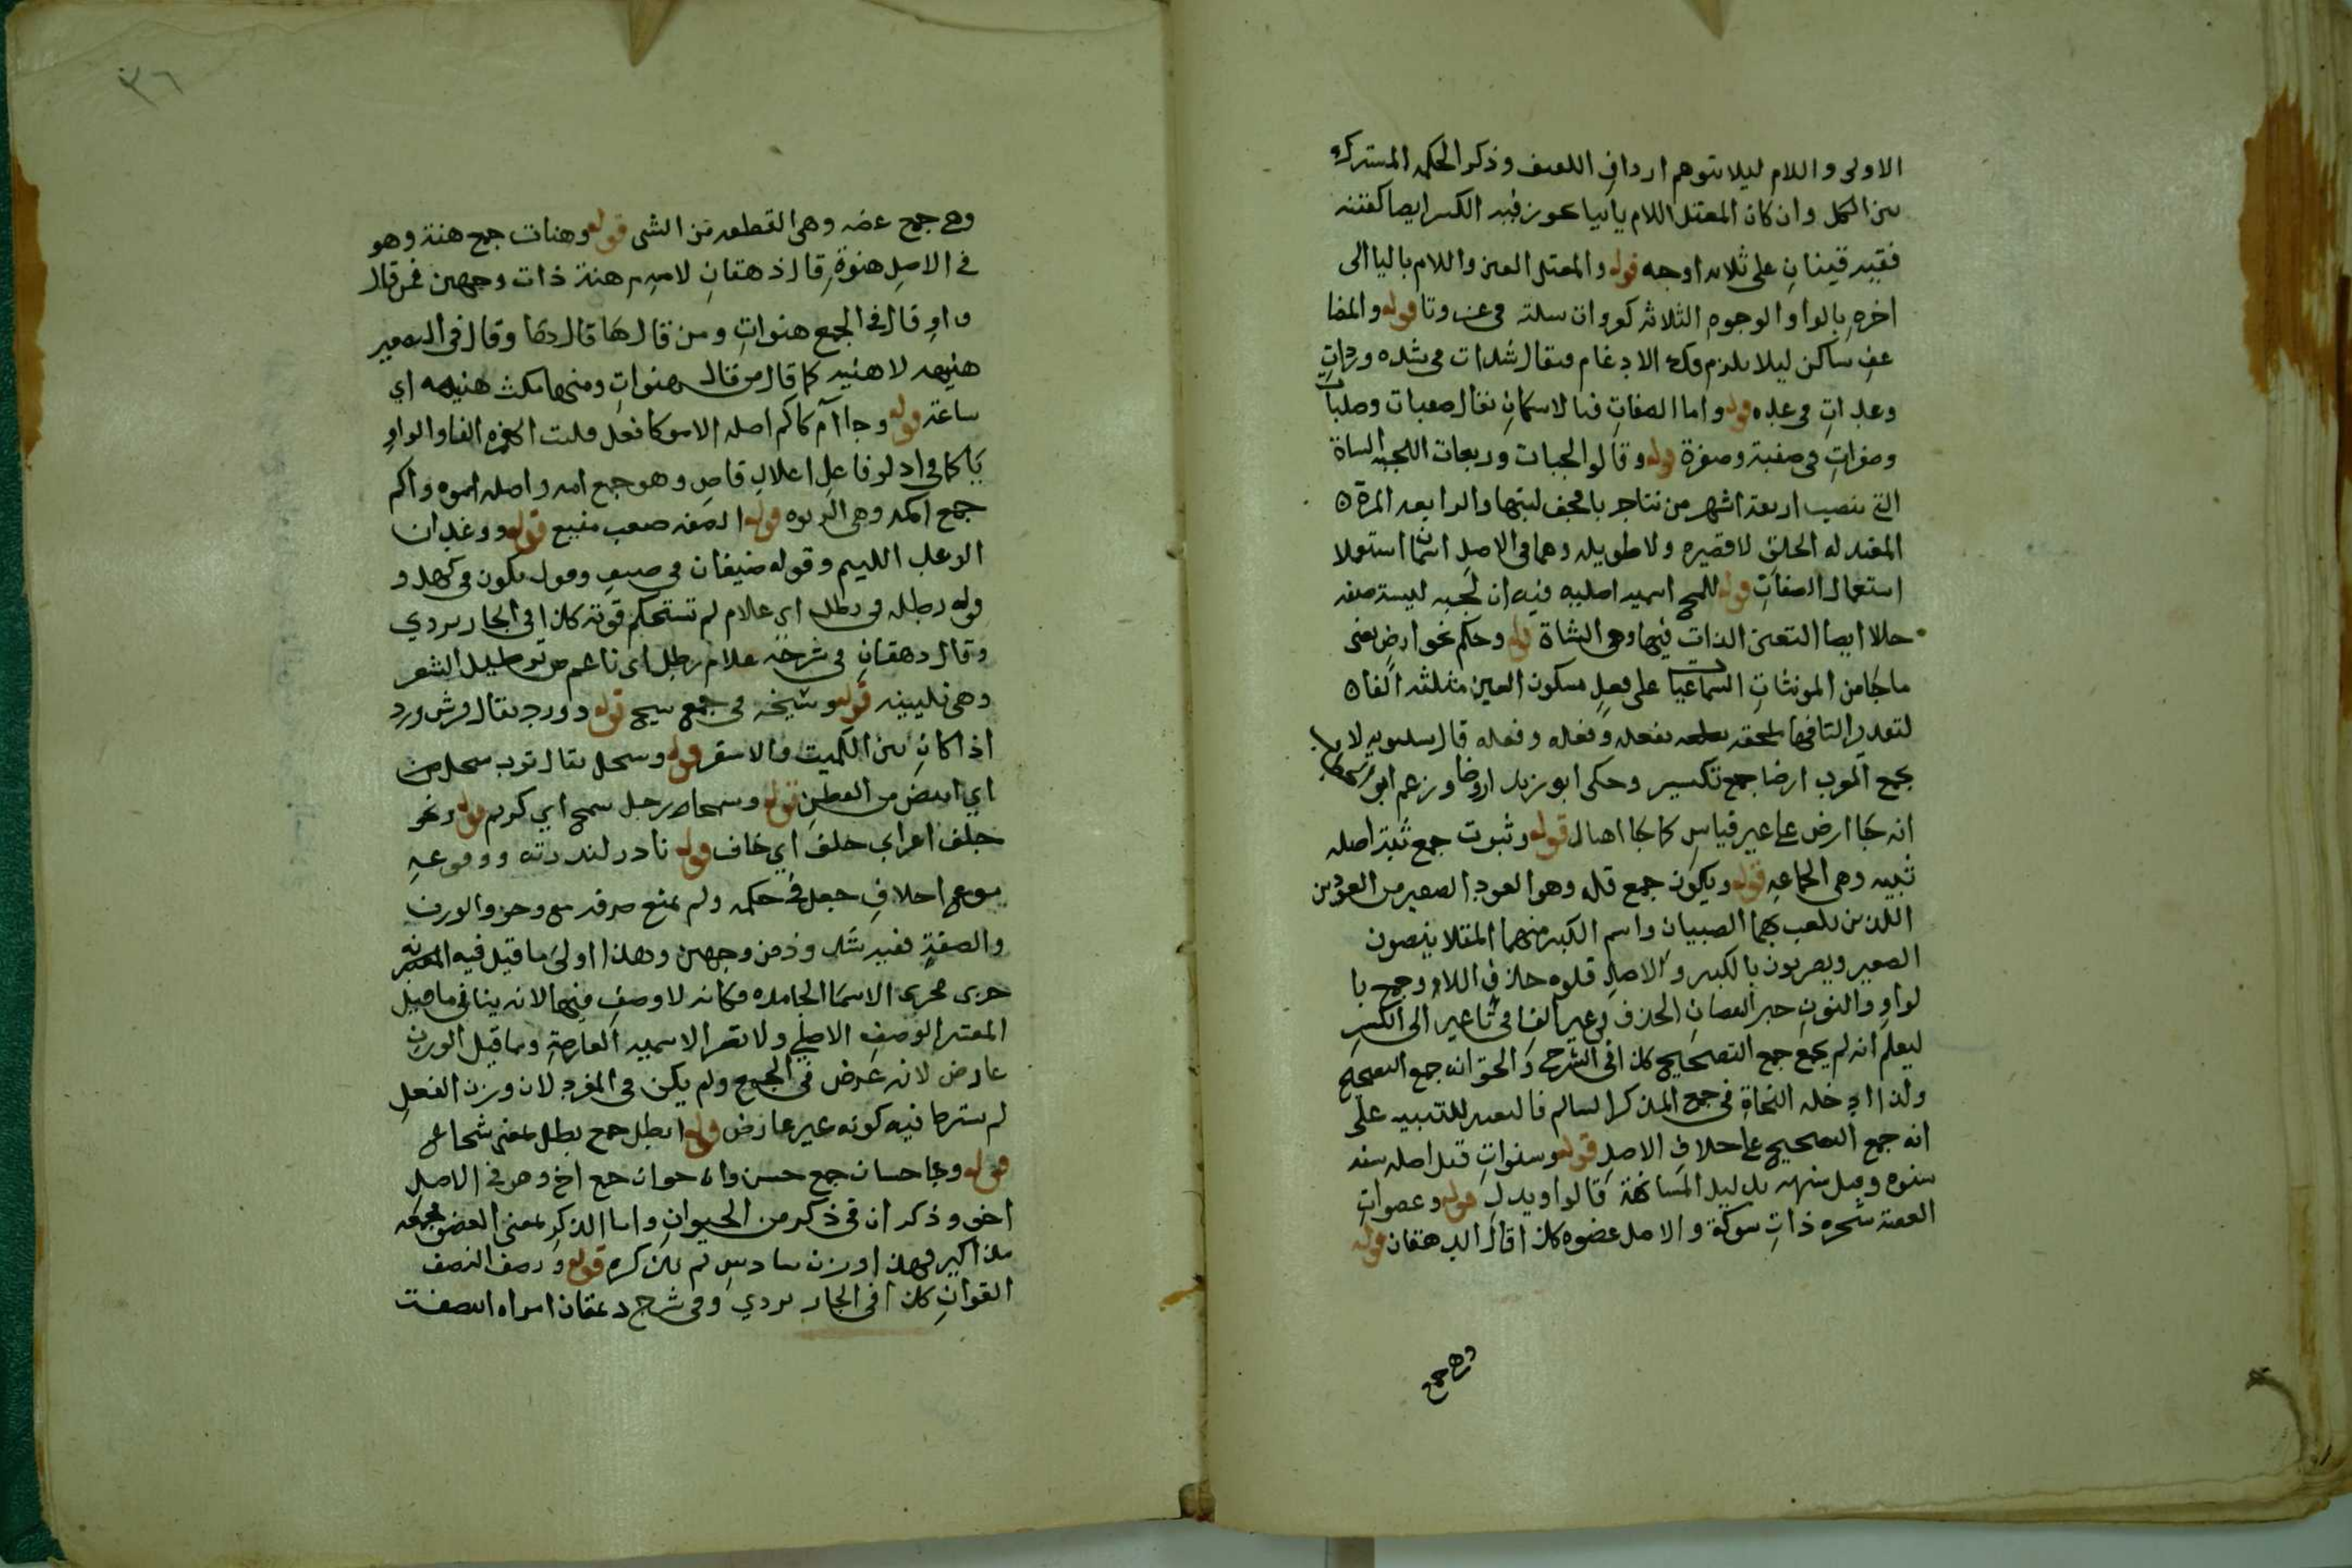 الاولى واللام ليلا يتوهم ارداف اللفيف وذكر الحكم المشترك
بين الكل وان كان المعتل اللام يائيا يجوز فيه الكسر ايضا كفتنه
ففيه قينان على ثلاثه اوجه قوله والمعتل العين واللام باليا الى
اخره بالواو الوجوه الثلاثه
عف ساكن ليلا يلزم فك الادغام فيقال شدات في شده وردات
وعدات في عده قوله واما الصفات فبالاسكان يقال صعبات وصلبات
وصفرات في صعبة وصفرة قوله وقالوا لجبات وربعات اللجبه الشاة
التي نصيب اربعة اشهر من نتاجها فجف لبنها والرابعه المرة
المعتدله الخلق لا قصيره ولا طويله وهما في الاصل اسمان استعملا
استعمال الصفات قوله للمح اسميه اصليه فيه ان لجبه ليست صفه
حالا ايضا التعين الذات فيها وهي الشاة قوله وحكم نحو ارض يعني
ما جا من المونثات السماعيات على فعل بسكون العين مثلثه الفا
لتقدير التا فيها ملحقه بفعله وفعله وفعله قال سيبويه لا
يجمع العرب ارضا جمع تكسير وحكى ابو زيد اروضا وزعم ابو
انه جا ارض على غير قياس كما جا اهال قوله وثبوت جمع ثبة اصله
ثبيه وهي الجماعه قوله ويكون جمع قله وهو العود الصغير من العودين
اللذين يلعب بهما الصبيان واسم الكبير منهما المقلا ينصبون
الصغير ويضربون بالكبير والاصل قلوه حذف اللام وجمع با
لواو والنون جبر النقصان الحذف وغير الفا في تا غير الى الكسر
ليعلم انه لم يجمع جمع التصحيح كذا في الشرح والحق انه جمع التصحيح
ولذا ادخله النحاة في جمع المذكر السالم فالتغيير للتنبيه على
انه جمع التصحيح على خلاف الاصل قوله وسنوات قيل اصله سنه
سنوه وقيل سنهه بدليل المسانهة قالوا ويدل قوله وعصوات
العضة شجره ذات شوكة والاصل عضوه كذا قال الدهقان قوله
وهي جمع
٣٦
وهي جمع عضه وهي القطعه من الشي قوله وهنات جمع هنة وهو
في الاصل هنوة قال ذهقان لاميه هنة ذات وجهين فمن قال
واو قال في الجمع هنوات ومن قال ها قال وقال في التصغير
هنيهه لا هنيه كما قال من قال هنوات ومنها مكث هنيهه اي
ساعة قوله وجا آم كاكم اصله الامو كافعل قلبت الهمزه الفا والواو
يا كما في ادلو فاعل اعلال قاض وهو جمع امه واصله اموه واكم
جمع اكمه وهي الربوه قوله الصفه صعب منيع قوله ووغدان
الوغد اللئيم وقوله ضيفان في ضيف وقول يكون في كهل و
قوله رطله في رطل اي غلام لم تستحكم قوته كذا في الجاربردي
وقال دهقان في شرحه غلام رطل اى ناعم الشعر
وهي قوله وشيخه في جمع شيخ قوله وورد يقال فرس ورد
اذا كان بين الكميت والاشقر قوله وسحل يقال ثوب سحل
اي ابيض من القطن قوله وسمحا رجل سمح اي كريم قوله ونحو
جلف اعرابي جلف اي جاف قوله نادر لندرته ووقوعه
موقع احلاف جعل في حكمه ولم يمنع صرفه والوزن
والصفة وذ من وجهين وهذا اولى ما قيل فيه
جرى مجرى الاسما الجامده فكانه لا وصف فيها لانه ينافي ما قيل
المعتبر الوصف الاصلي ولا تضر الاسميه العارضة وما قيل الوزن
عارض لانه عرض في الجمع ولم يكن في المفرد لان وزن الفعل
لم يشترط فيه كونه غير عارض قوله ابطل جمع بطل بمعنى شجاع
قوله وجا حسان جمع حسن واخوان جمع اخ وهو في الاصل
اخو وذكران في ذكر من الحيوان واما الذكر بمعنى العضو فجمعه
مذاكير وهذا وزن سادس لم يذكره قوله ونصف النصف
القوان كذا في الجاربردي وفي شرح دهقان امراه انتصفت